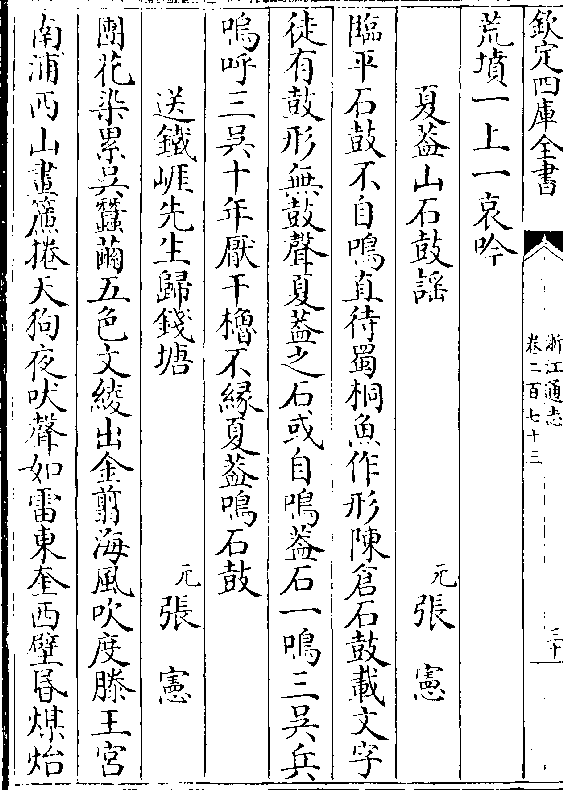 欽定四庫全書
浙江通志
卷二百七十三
三十
荒墳一上一哀吟
夏葢山石鼓謡
元張憲
臨平石鼓不自鳴直待蜀桐魚作形陳倉石鼓載文字
徒有鼓形無鼓聲夏葢之石或自鳴葢石一鳴三吳兵
嗚呼三吳十年厭干櫓不縁夏葢鳴石鼓
送鐵崕先生歸錢塘
元張憲
團花染累吳蠶繭五色文綾出金翦海風吹度滕王宮
南浦西山畫簾捲天狗夜吠聲如雷東奎西壁昏煤炲